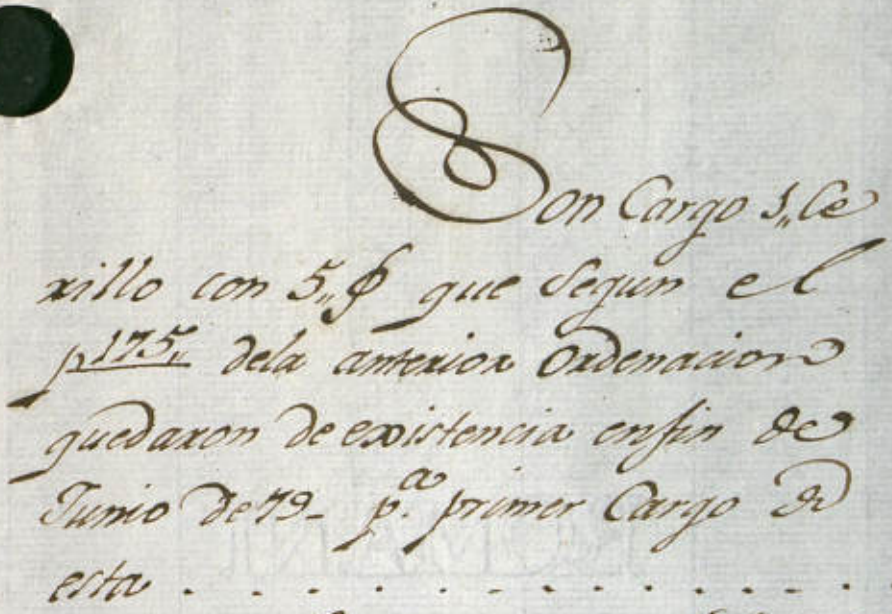 Son Cargo 1,, Ce
rillo con 5,, p que segun el
p 175,, dela anterior Ordenacion
quedaron de existencia enfin de
Junio de 79_ p.a primer Cargo de
esta . . . . . . . . . . . . . .